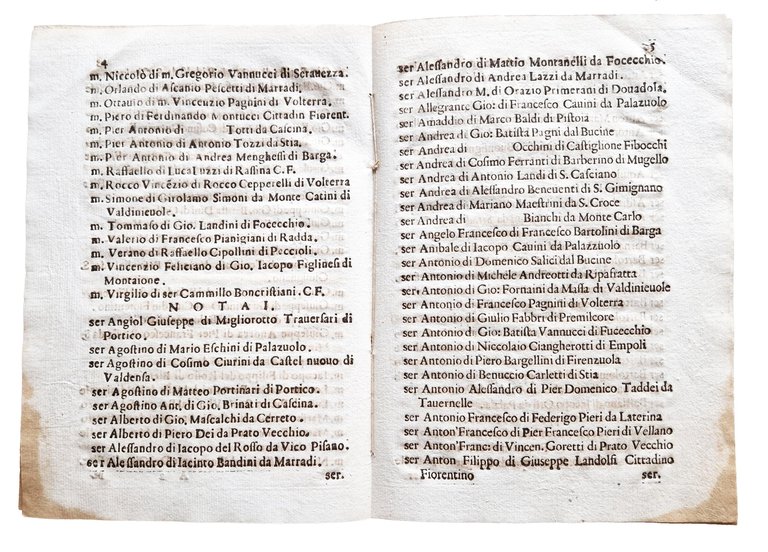 4
m. Niccolò di m. Gregorio Vannucci di Seravezza.
m. Orlando di Ascanio Pescetti di Marradi.
m. Ottavio di m. Vincenzio Pagnini di Volterra.
m. Piero di Ferdinando Montucci Cittadin Fiorent.
m. Pier Antonio di Totti da Cascina.
m. Pier Antonio di Antonio Tozzi da Stia.
m. Pier Antonio di Andrea Menghesi di Barga.
m. Raffaello di Luca Luzzi da Rassina C. F.
m. Rocco Vincēzio di Rocco Cepperelli di Volterra
m. Simone di Girolamo Simoni da Monte Catini di
Valdinieuole.
m. Tommaso di Gio. Landini di Focecchio.
m. Valerio di Francesco Pianigiani di Radda.
m. Verano di Raffaello Cipollini di Peccioli.
m. Vincenzio Feliciano di Gio. Iacopo Figlinesi di
Montaione.
m. Virgilio di ser Cammillo Boncristiani. C. F.
NOTAI.
ser Angiol Giuseppe di Migliorotto Trauersari di
Portico.
ser Agostino di Mario Eschini di Palazuolo.
ser Agostino di Cosimo Ciurini da Castel nuouo di
Valdensa.
ser Agostino di Matteo Portinari di Portico.
ser Agostino Ant. di Gio. Brinati di Cascina.
ser Alberto di Gio. Mascalchi da Cerreto.
ser Alberto di Piero Dei da Prato Vecchio.
ser Alessandro di Iacopo del Rosso da Vico Pisano.
ser Alessandro di Iacinto Bandini da Marradi.
ser.
5
ser Alessandro di Mattio Montanelli da Focecchio.
ser Alessandro di Andrea Lazzi da Marradi.
ser Alessandro M. di Orazio Primerani di Douadola.
ser Allegrante Gio: di Francesco Cauini da Palazuolo
ser Amaddio di Marco Baldi di Pistoia
ser Andrea di Gio: Batista Pagni dal Bucine
ser Andrea di Occhini di Castiglione Fibocchi
ser Andrea di Cosimo Ferranti di Barberino di Mugello
ser Andrea di Antonio Landi di S. Casciano
ser Andrea di Alessandro Beneuenti di S. Gimignano
ser Andrea di Mariano Maestrini da S. Croce
ser Andrea di Bianchi da Monte Carlo
ser Angelo Francesco di Francesco Bartolini di Barga
ser Anibale di Iacopo Cauini da Palazzuolo
ser Antonio di Domenico Salici dal Bucine
ser Antonio di Michele Andreotti da Ripafratta
ser. Antonio di Gio: Fornaini da Massa di Valdinieuole
ser Antonio di Francesco Pagnini di Volterra
ser Antonio di Giulio Fabbri di Premilcore
ser Antonio di Gio: Batista Vannucci di Fucecchio
ser Antonio di Niccolaio Ciangherotti di Empoli
ser Antonio di Piero Bargellini di Firenzuola
ser Antonio di Benuccio Carletti di Stia
ser Antonio Alessandro di Pier Domenico Taddei da
Tauernelle
ser Antonio Francesco di Federigo Pieri da Laterina
ser Anton'Francesco di Pier Francesco Pieri di Vellano
ser Anton'Franc: di Vincen. Goretti di Prato Vecchio
ser Anton Filippo di Giuseppe Landolfi Cittadino
Fiorentino ser.